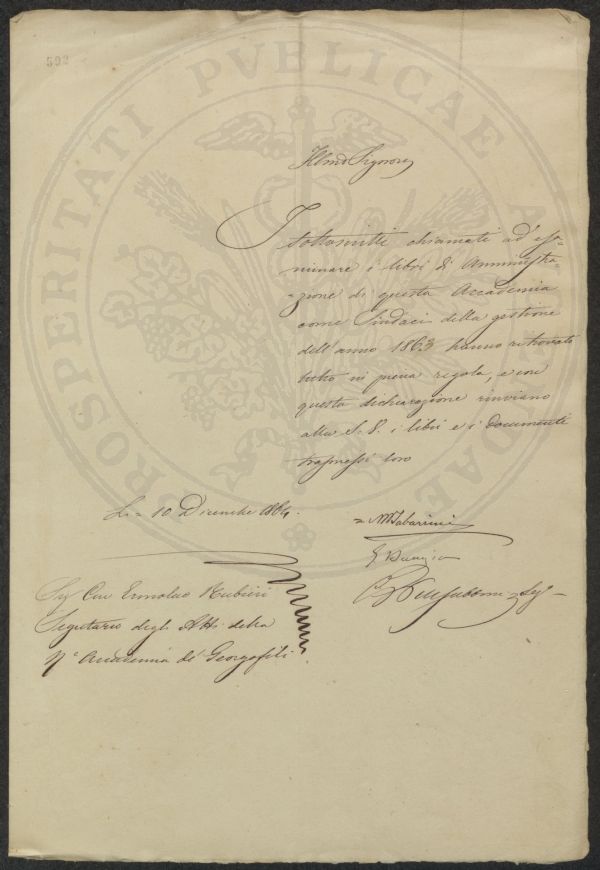 592
PROSPERITATI PVBLICAE AVGENDAE
Illmo Signore
I sottoscritti chiamati ad' esa-
minare i libri di Amministra-
-zione di questa Accademia
come Sindaci della gestione
dell'anno 1863 hanno ritrovato
tutto in piena regola, e con
questa dichiarazione rinviano
alla S. V. i libri e i documenti
trasmessi loro
Li = 10 Dicembre 1864.
= M Tabarrini
Sig Cav Ermolao Rubieri
Segretario degli Atti della
Ra Accademia de' Georgofili.